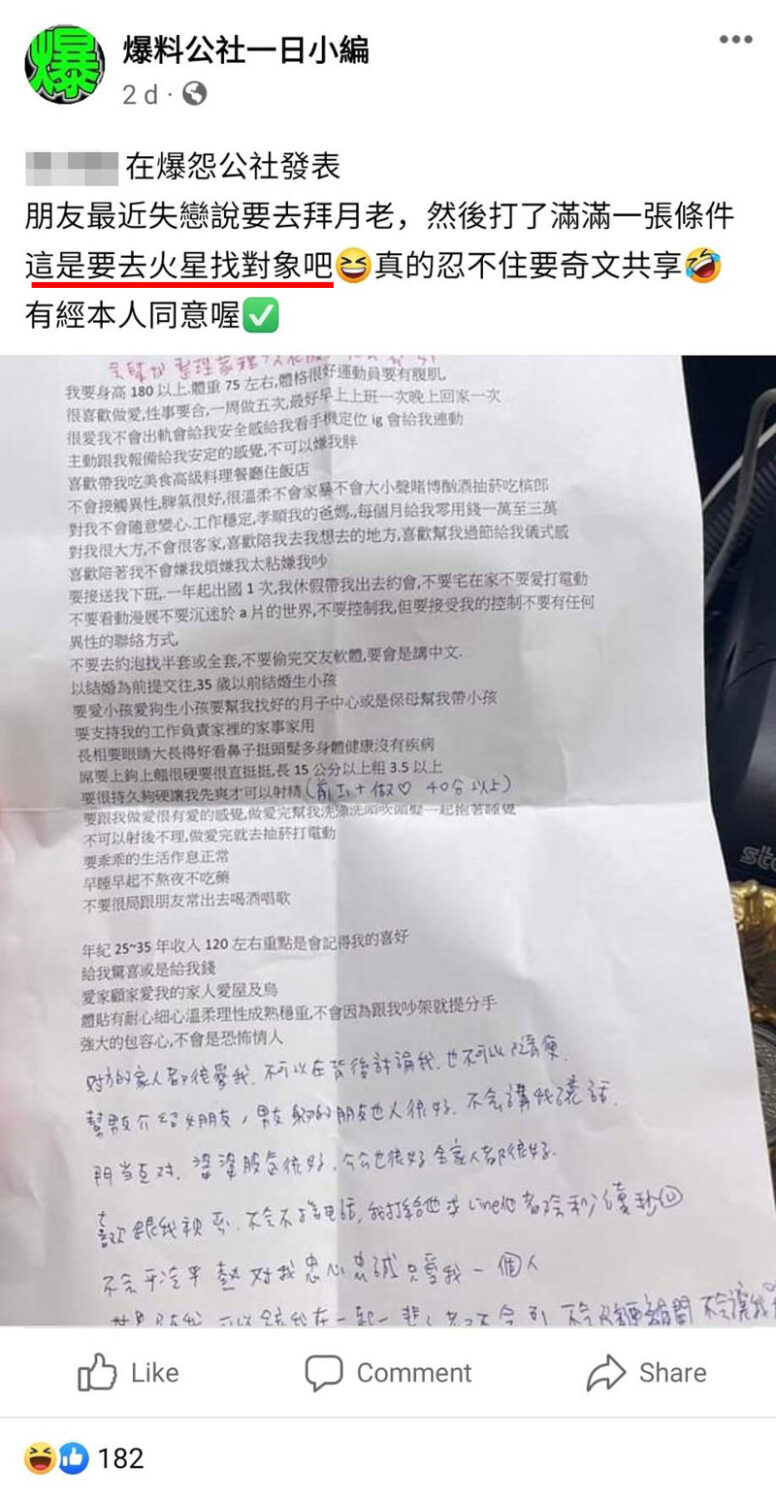 爆
爆料公社一日小編
2 d
在爆怨公社發表
朋友最近失戀說要去拜月老，然後打了滿滿一張條件
這是要去火星找對象吧😆真的忍不住要奇文共享🤣
有經本人同意喔✅
我要身高 180 以上.體重 75 左右,體格很好運動員要有腹肌,
很喜歡做愛,性事要合,一周做五次,最好早上上班一次晚上回家一次
很愛我不會出軌會給我安全感給我看手機定位 ig 會給我連動
主動跟我報備給我安定的感覺,不可以嫌我胖
喜歡帶我吃美食高級料理餐廳住飯店
不會接觸異性,脾氣很好,很溫柔不會家暴不會大小聲賭博酗酒抽菸吃檳郎
對我不會隨意變心.工作穩定,孝順我的爸媽.,每個月給我零用錢一萬至三萬
對我很大方,不會很客家,喜歡陪我去我想去的地方,喜歡幫我過節給我儀式感
喜歡陪著我不會嫌我煩嫌我太粘嫌我吵
要接送我下班,.一年起出國 1 次,我休假帶我出去約會,不要宅在家不要愛打電動
不要看動漫展不要沉迷於 a 片的世界,不要控制我,但要接受我的控制不要有任何
異性的聯絡方式,
不要去約泡找半套或全套,不要偷完交友軟體,要會是講中文.
以結婚為前提交往,35 歲以前結婚生小孩
要愛小孩愛狗生小孩要幫我找好的月子中心或是保母幫我帶小孩
要支持我的工作負責家裡的家事家用
長相要眼睛大長得好看鼻子挺頭髮多身體健康沒有疾病
屌要上鉤上翹很硬要很直挺挺,長 15 公分以上粗 3.5 以上
要很持久夠硬讓我先爽才可以射精(前工+做♡ 40分以上)
要跟我做愛很有愛的感覺,做愛完幫我洗澡洗頭吹頭髮一起抱著睡覺
不可以射後不理,做愛完就去抽菸打電動
要乖乖的生活作息正常
早睡早起不熬夜不吃藥
不要很局跟朋友常出去喝酒唱歌
年紀 25~35 年收入 120 左右重點是會記得我的喜好
給我驚喜或是給我錢
愛家顧家愛我的家人愛屋及烏
體貼有耐心細心溫柔理性成熟穩重,不會因為跟我吵架就提分手
強大的包容心,不會是恐怖情人
對方的家人都很愛我.不可以在背後討論我.也不可以隨便
幫男友介紹女朋友,男友的朋友也人很好.不會講我壞話.
門當互对.婆婆脾氣很好.公公也很好全家人都很好.
不會不接電話,我打給他或Line他都會秒讀秒回
對我忠心忠誠只愛我一個人
Like
Comment
Share
182